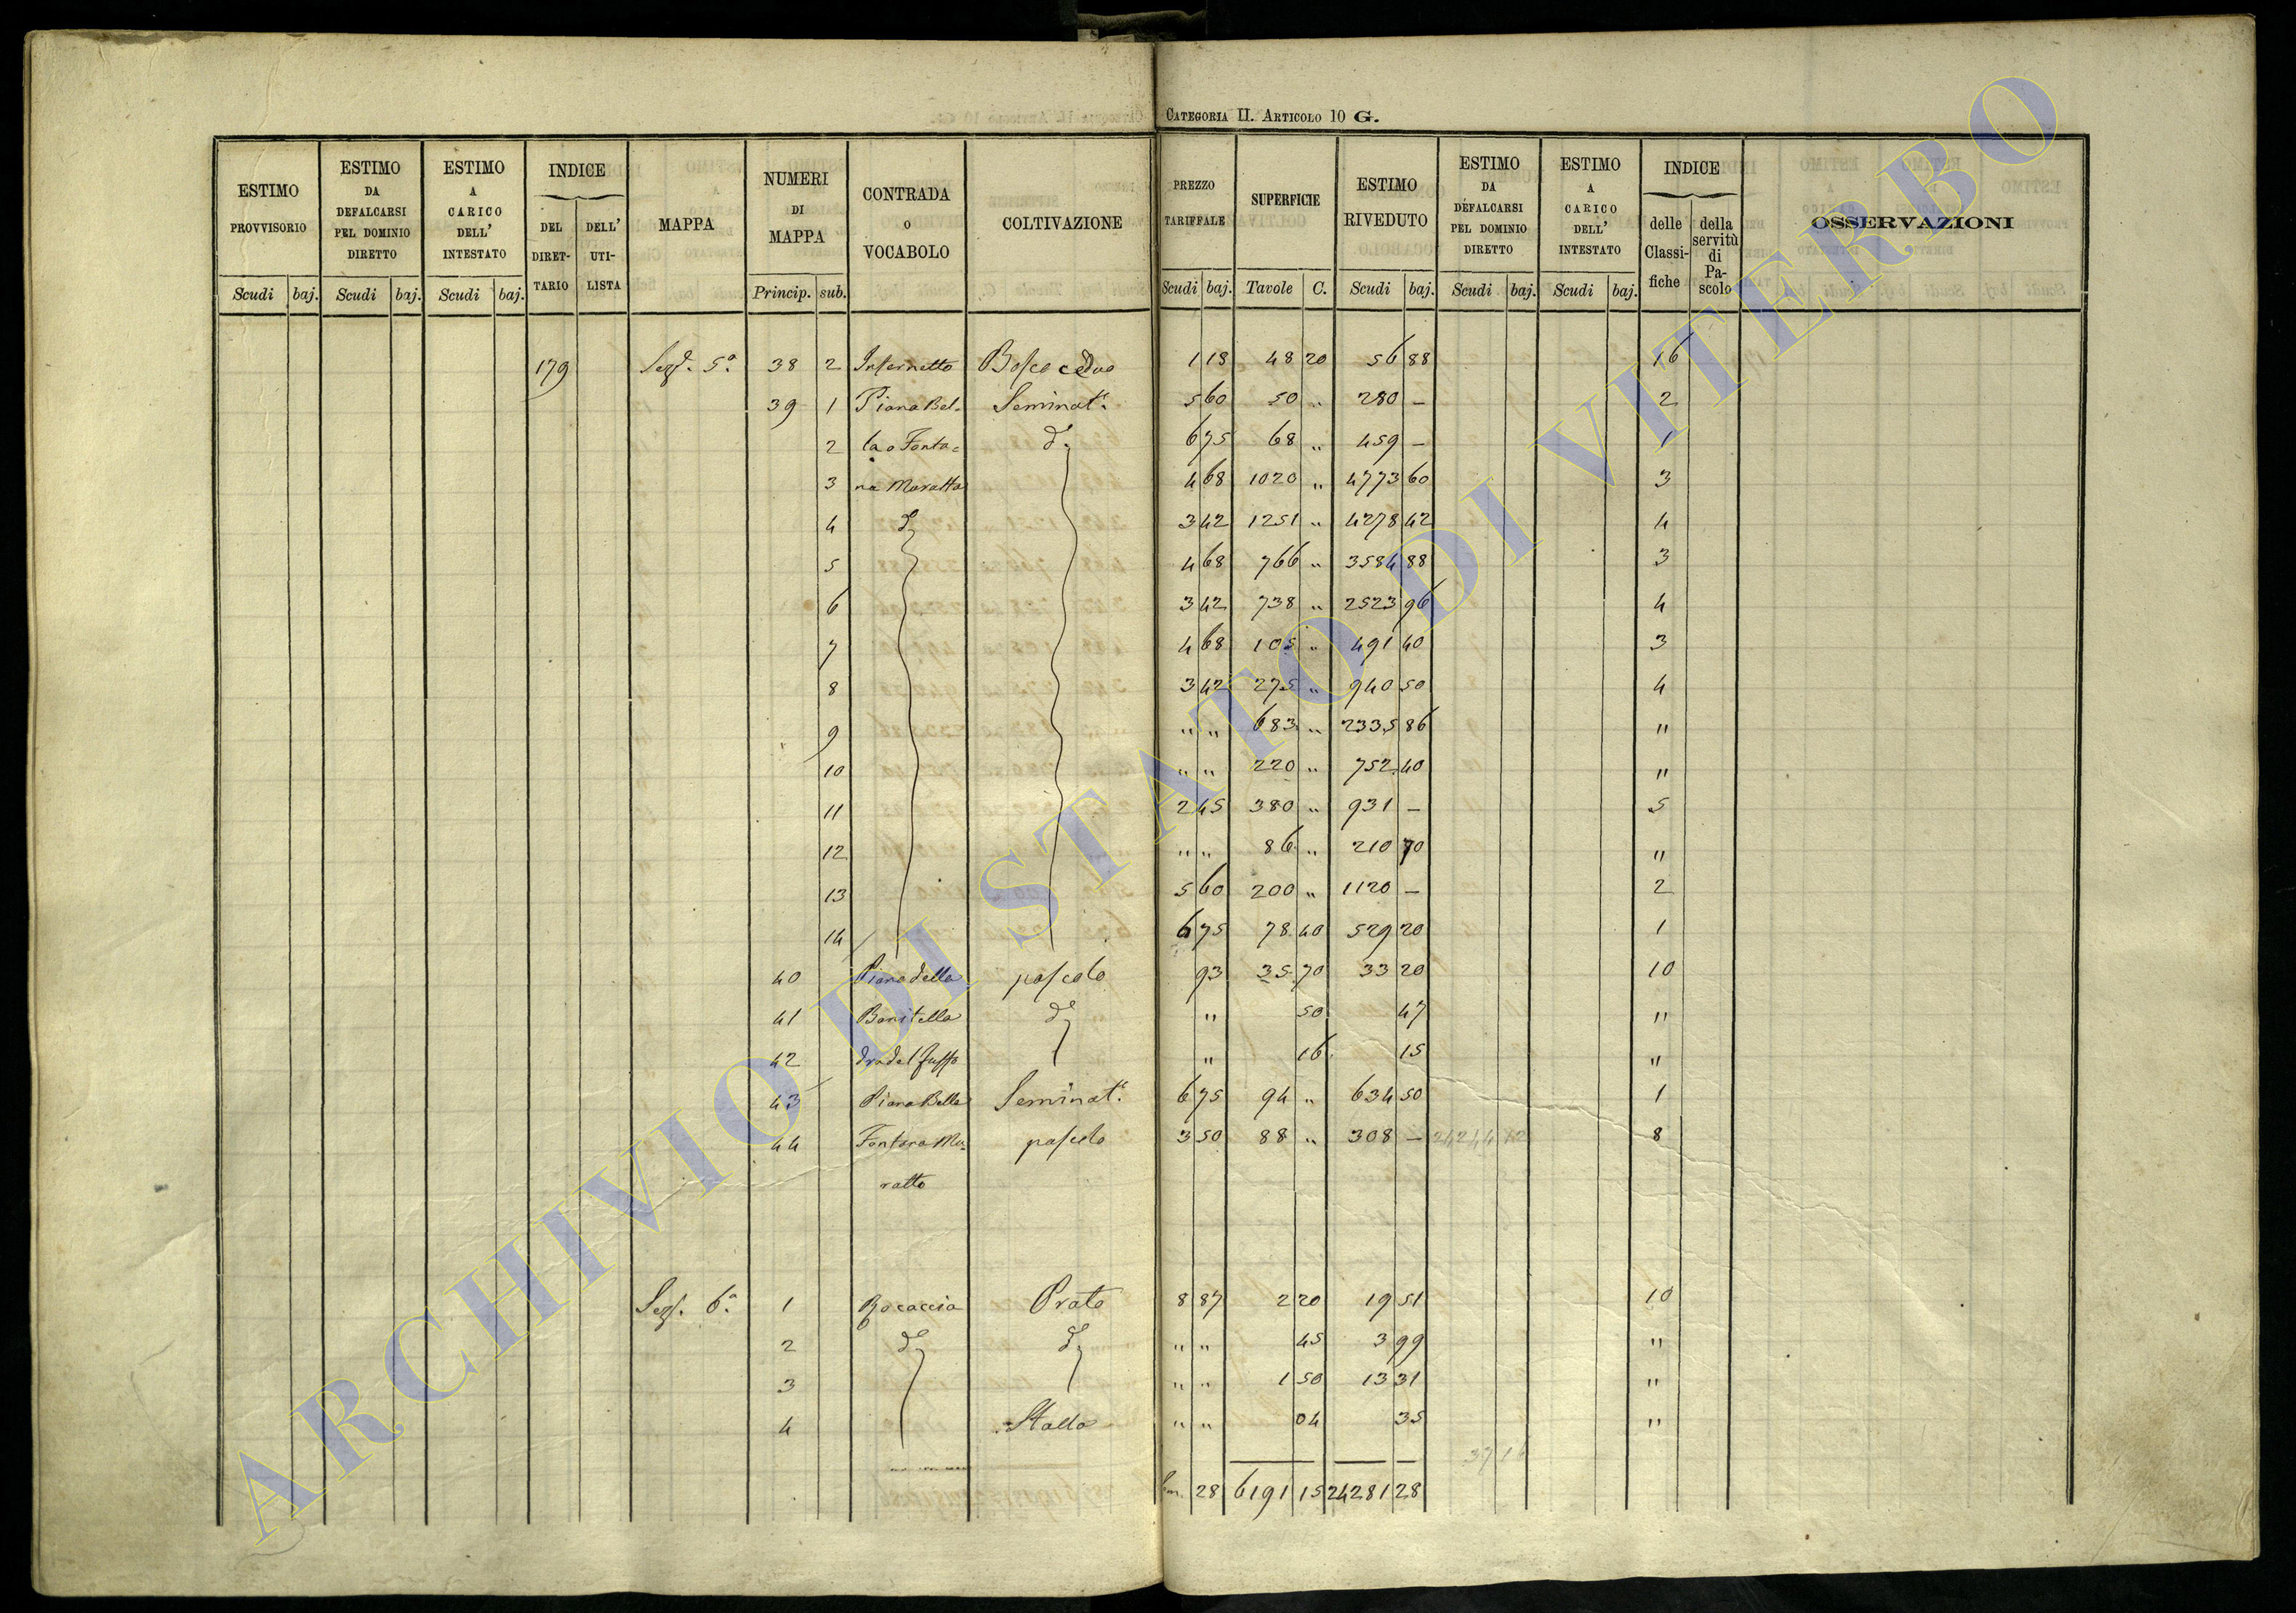 CATEGORIA II. ARTICOLO 10 G.
ESTIMO PROVVISORIO
ESTIMO DA DEFALCARSI PEL DOMINIO DIRETTO
ESTIMO A CARICO DELL' INTESTATO
INDICE
DEL DIRET- TARIO
DELL' UTI- LISTA
MAPPA
NUMERI DI MAPPA
CONTRADA o VOCABOLO
COLTIVAZIONE
PREZZO TARIFFALE
SUPERFICIE
ESTIMO RIVEDUTO
ESTIMO DA DEFALCARSI PEL DOMINIO DIRETTO
ESTIMO A CARICO DELL' INTESTATO
INDICE
delle Classi- fiche
della servitù di Pa- scolo
OSSERVAZIONI
Scudi baj. Scudi baj. Scudi baj. Princip. sub. Scudi baj. Tavole C. Scudi baj. Scudi baj. Scudi baj.
179 Sezе. 5ª 38 2 Infernetto Bosco ceduo 1 18 48 20 56 88 16
39 1 Piana Bel- Seminat. 5 60 50 " 280 — 2
2 la o Fonta= d. 6 75 68 " 459 — 1
3 na Moratta 4 68 1020 " 4773 60 3
4 d. 3 42 1251 " 4278 42 4
5 4 68 766 " 3584 88 3
6 3 42 738 " 2523 96 4
7 4 68 105 " 491 40 3
8 3 42 275 " 940 50 4
9 " " 683 " 2335 86 "
10 " " 220 " 752 40 "
11 2 45 380 " 931 — 5
12 " " 86 " 210 70 "
13 5 60 200 " 1120 — 2
14 6 75 78 40 529 20 1
40 Piana della pascolo 93 35 70 33 20 10
41 Banitella d. " 50 47 "
42 " 16 15 "
43 Piana Bella Seminat. 6 75 94 " 634 50 1
44 Fontana Mo- pascolo 3 50 88 " 308 — 8
ratto
Sez. 6ª 1 Bocaccia Prato 8 87 2 20 19 51 10
2 d. d. " " 45 3 99 "
3 " " 1 50 13 31 "
4 Stalla " " 04 35 "
28 6191 15 24281 28
ARCHIVIO DI STATO DI VITERBO